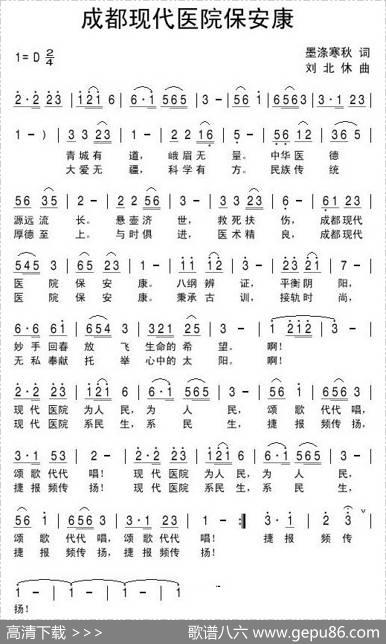 成都现代医院保安康
1=D 2/4
墨涤寒秋 词
刘北休 曲
2·2 23 | 1 2 1 6 | 6·1 565 | 3 - | 56 1 | 6563 | 3·1 23 |
1 - ) | 33 23 | 2 - | 22 16 | 5 - | 56 12 | 33 23 |
青城有 道, 峨眉无 量。 中华医 德
大爱无 疆, 科学有 方。 民族传 统
56 35 | 2 - | 22 23 | 1 - | 56 12 | 6 - | 61 23 |
源远流 长。 悬壶济 世, 救死扶 伤, 成都现代
厚德至 上。 与时俱 进, 医术精 良, 成都现代
545 3 | 65 23 | 1 - | 11 12 | 3 - | 23 21 | 7 - |
医 院 保 安 康。 八纲 辨 证, 平衡 阴 阳,
医 院 保 安 康。 秉承 古 训, 接轨 时 尚,
6·6 61 | 654 3 | 321 25 | 3 - | 1 212 | 3 - |
妙手 回春 放 飞 生命的 希 望。 啊!
无私 奉献 托 举 心中的 太 阳。 啊!
2·2 23 | 121 6 | 6·1 565 | 3 - | 56 1 | 65 63 |
现 代 医院 为人 民, 为 人 民, 颂 歌 代代 唱,
现 代 医院 系民 生, 系 民 生, 捷 报 频传 扬,
3·1 53 | 2 - | 2·2 23 | 121 6 | 6·1 565 | 3 - |
颂 歌 代代 唱! 现 代 医院 为人 民, 为 人 民,
捷 报 频传 扬! 现 代 医院 系民 生, 系 民 生,
56 1 | 656 3 | 3·1 23 | 1 - :‖ 3·1 | 2 3 |
颂 歌 代代 唱, 颂 歌 代代 唱! 捷 报 频 传
捷 报 频传 扬, 捷 报 频传 扬!
1 - | 1 - | 1 - | 1 - ‖
扬!
高清下载 >>>
歌谱八六 www.gepu86.com